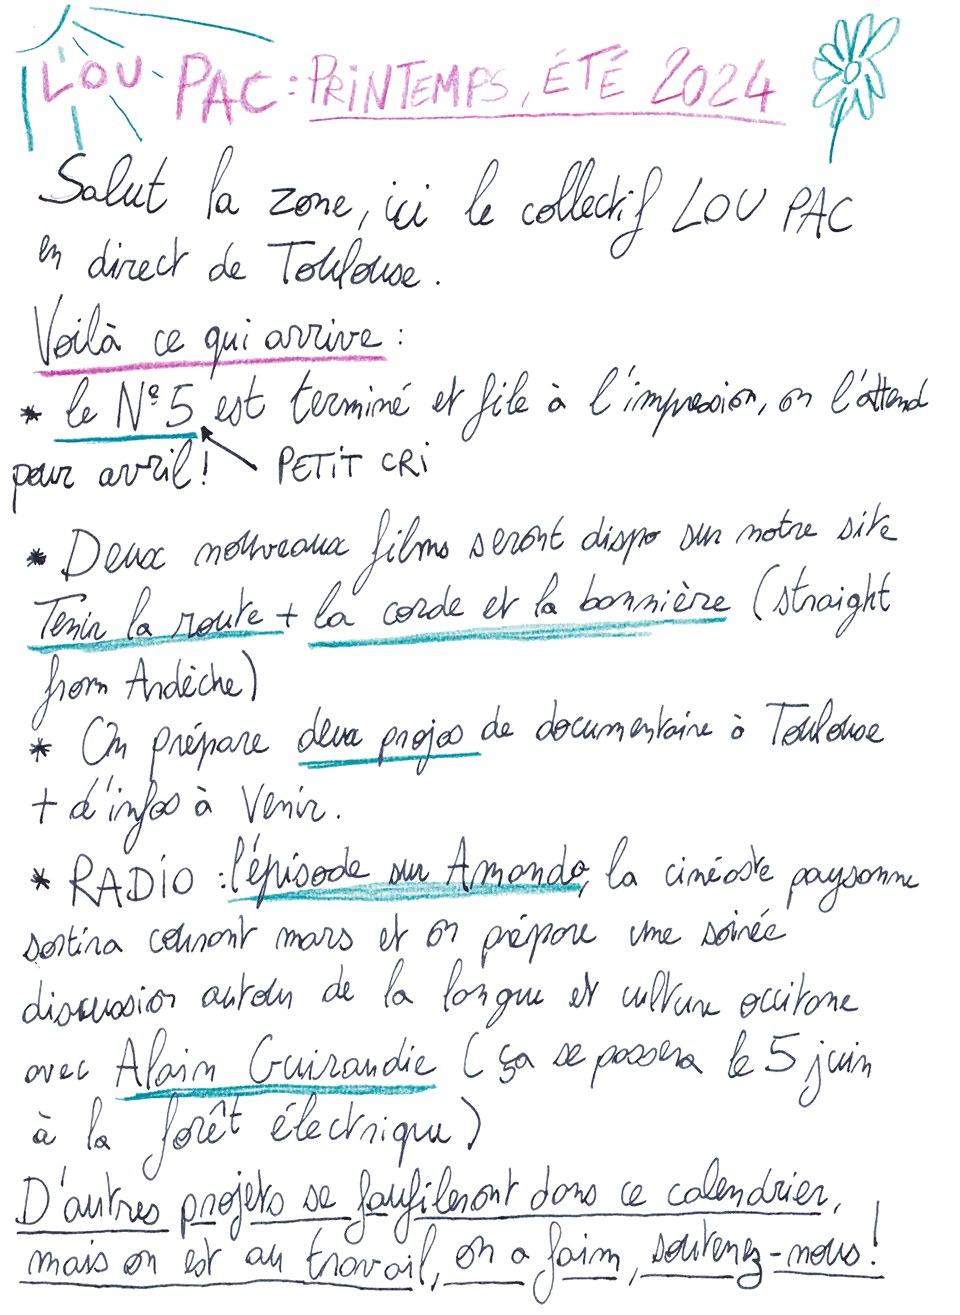 LOU PAC : PRINTEMPS, ÉTÉ 2024
Salut la zone, ici le collectif LOU PAC
en direct de Toulouse.
Voilà ce qui arrive :
* le N°5 est terminé et file à l'impression, on l'attend
pour avril ! PETIT CRI
* Deux nouveaux films seront dispo sur notre site
Tenir la route + la corde et la bonnière (straight
from Ardèche)
* On prépare deux projos de documentaire à Toulouse
+ d'infos à venir.
* RADIO : l'épisode sur Amanda, la cinéaste paysanne
sortira courant mars et on prépare une soirée
discussion autour de la langue et culture occitane
avec Alain Guiraudie (ça se passera le 5 juin
à la forêt électrique)
D'autres projets se faufileront dans ce calendrier,
mais on est au travail, on a faim, soutenez-nous !